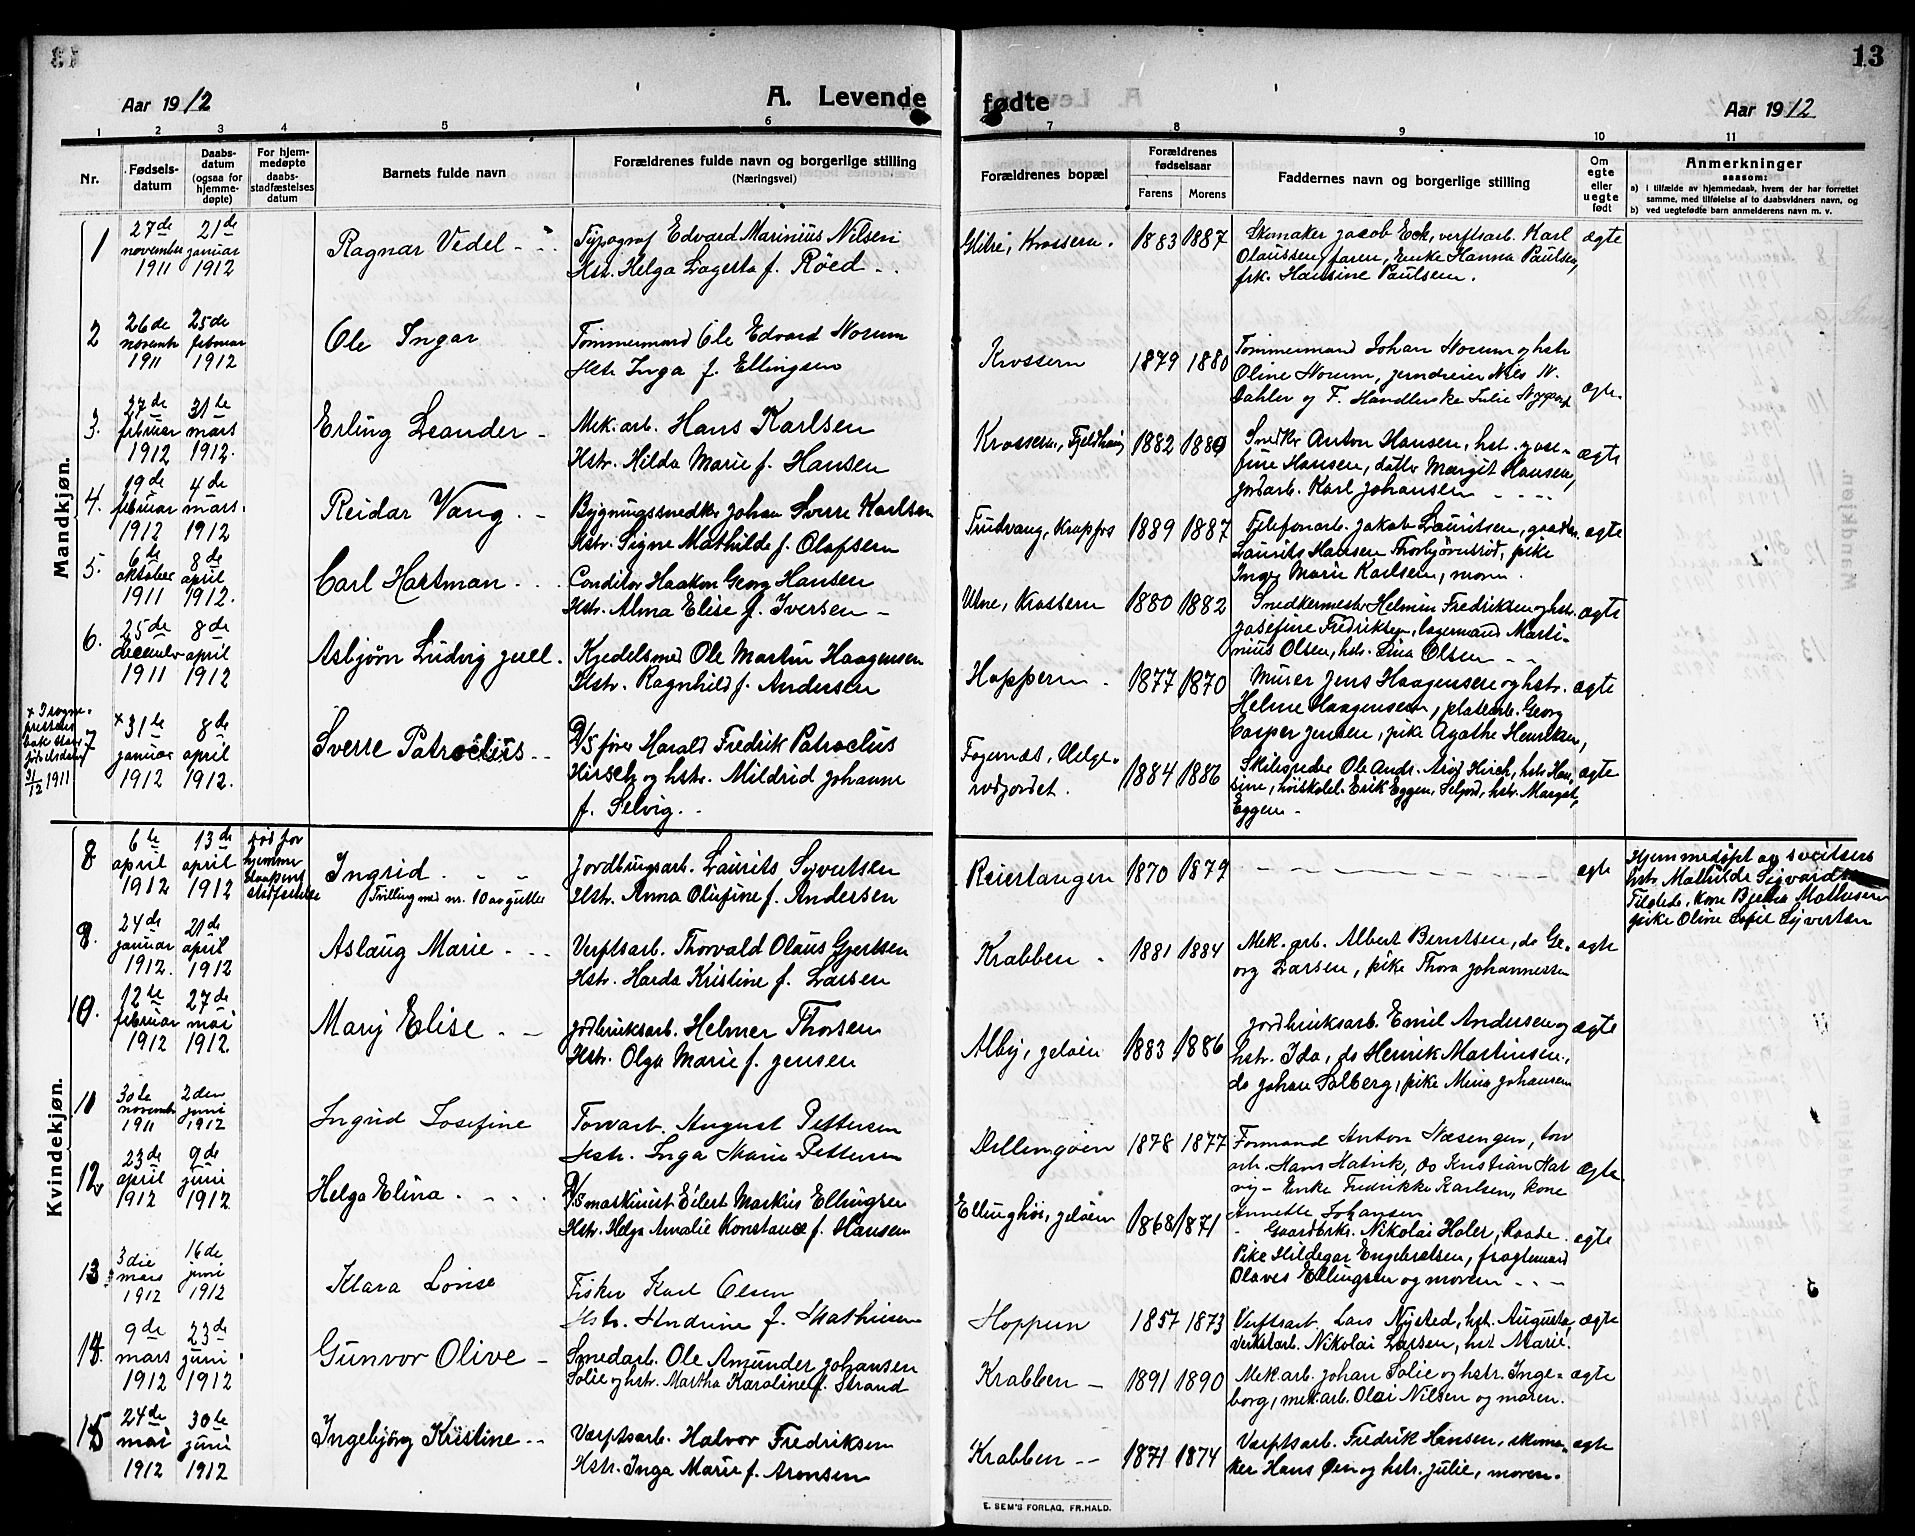 13
Aar 1912
A. Levende
fødte
Aar 1912
1 2 3 4 5 6 7 8 9 10 11
Nr.
Fødsels-
datum
Daabs-
datum
(ogsaa for
hjemme-
døpte)
For hjem-
medøpte
daabs-
stadfæstelses
datum
Barnets fulde navn
Forældrenes fulde navn og borgerlige stilling
(Næringsvei)
Forældrenes bopæl
Forældrenes
fødselsaar
Farens Morens
Faddernes navn og borgerlige stilling
Om
egte
eller
uegte
født
Anmerkninger
saasom:
a) i tilfælde av hjemmedaab, hvem der har forrettet
samme, med tilføielse af to daabsvidners navn, og
b) ved uegtefødte barn anmelderens navn m. v.
Mandkjøn.
1
27de november 1911
21de januar 1912
Ragnar Vedel
Typograf Edvard Marinius Nilsen
Hstr. Helga Lagerta f. Røed
Glitre, Krossern.
1883 1887
Skomaker Jacob Eck, verftsarb. Karl
Olaussen, faren, Enke Hanna Paulsen,
frk. Hansine Paulsen.
ægte
2
26de november 1911
25de februar 1912
Ole Ingar
Tømmermand Ole Edvard Norum
Hstr Inga f. Ellingsen
Krossern
1879 1880
Tømmermand Johan Norum og hstr
Oline Norum, jerndreier Nils N.
Dahler og F. Handlerske Julie Nygaard
ægte.
3.
27de februar 1912
31te mars 1912.
Erling Leander
Mek. arb. Hans Karlsen
Hstr. Hilda Marie f. Hansen
Krossern, Fjeldhaug
1882 1880
Snedker Anton Hansen, hst. Jose-
fine Hansen, datter Margit Hansen,
jordarb. Karl Johansen
ægte
4.
19de februar 1912
4de mars. 1912
Reidar Vang.
Bygningssnedker Johan Sverre Karlsen
Hstr. Signe Mathilde f. Olafsen
Trudvang, Krapfos
1889 1887
Telefonarb. Jakob Lauritsen, gaardm.
Laurits Hansen Thorbjørnsrød, pike
Inger Marie Karlsen, moren.
ægte
5.
6te oktober 1911
8de april 1912.
Carl Hartman
Conditor Haakon Georg Hansen
Hstr. Alma Elise f. Iversen
Utne, Krossern
1880 1882
Snedkermester Helmin Fredriksen og hstr.
Josefine Fredriksen, lagermand Marti-
nius Olsen, hstr. Lina Olsen
ægte
6.
25de december 1911
8de april 1912
Asbjørn Ludvig Juel.
Kjedelsmed Ole Martin Haagensen
Hstr. Ragnhild f. Andersen
Hoppern
1877 1870
Murer Jens Haagensen og hstr.
Helene Haagensen, platearb. Georg
Casper Jensen, pike Agathe Henriksen,
ægte
7
x 31te januar 1912
8de april 1912.
Sverre Patroclus
D/S fører Harald Fredrik Patroclus
Hirsch og hstr. Mildrid Johanne
f. Selvig.
Fagernæs, Helge-
rødjordet.
1884 1886
Skibsreder Ole Andr. Hirsch, hstr. Han-
sine, høiskolel. Erik Eggen, Seljord, hstr. Margit
Eggen
ægte
31/12 1911
Kvindekjøn.
8
6te april 1912
13de april 1912
Ingrid.
Tvilling med nr. 10 av gutter
Jordbrugsarb. Laurits Syvertsen
Hstr. Anna Olufine f. Andersen
Reiertangen
1870 1879
egte
Hjemmedøpt av sveitsers
hstr. Mathilde Sigvardt
Tilstede, kone Mathisen
pike Oline Sofie Syvertsen
9.
24de januar 1912.
21de april 1912
Aslaug Marie
Verftsarb. Thorvald Olaus Gjertsen
Hstr. Harda Kristine f. Larsen
Krabben
1881 1884
Mek. arb. Albert Berntsen, do Ge-
org Larsen, pike Thora Johannessen
egte
10.
12te februar 1912
27de mai 1912.
Mary Elise
Jordbruksarb. Helmer Thorsen
Hstr. Olga Marie f. Jensen
Alby, Jeløen
1883 1886
Jordbruksarb. Emil Andersen og
hstr. Ida, do Henrik Martinsen,
do Johan Solberg, pike Mina Johansen
ægte
11
30te november 1911
2den juni 1912
Ingrid Josefine
Torvarb. August Pettersen
Hstr. Inga Marie Pettersen
Dillingøen
1878 1877
Formand Anton Næsengen, torv
arb. Hans Hatvik, do Kristian Hat
vig - Enke Fredrikke Karlsen, kone
Annette Johansen
ægte
12
23de april 1912
9de juni 1912.
Helga Elina
D/S maskinist Eilert Markus Ellingsen
Hstr. Helga Amalie Konstance f. Hansen
Ellinghøi, Jeløen
1868 1871
Gaardbrkr. Nikolai Haler, Raade.
Pike Hildegar Engebretsen, fragtemand
Olaves Ellingsen og moren
egte
13
3die mars 1912
16de juni 1912
Klara Lovise
Fisker Karl Olsen
Hstr. Andrine f. Mathisen
Hoppern
1857 1873
Verftsarb. Lars Nysted, hst. Augusta,
verkstarb. Nikolai Larsen, hst Marie.
ægte
14.
9de mars 1912
23de juni 1912
Gunvor Olive
Smedarb. Ole Amunder Johansen
Solie og hstr. Martha Karoline f. Strand
Krabben
1891 1890
Mek arb. Johan Solie og hstr. Inge-
borg, mek. arb. Olai Nilsen og moren.
ægte
15
24de mai 1912
30te juni 1912
Ingebjørg Kristine
Værftsarb. Halvor Fredriksen
Hstr. Inga Marie f. Aronsen
Krabben
1871 1874
Værftsarb. Fredrik Hansen, skoma-
ker Hans Øien og hstr. Julie, moren.
ægte
E. SEM'S FORLAG, FR.HALD.